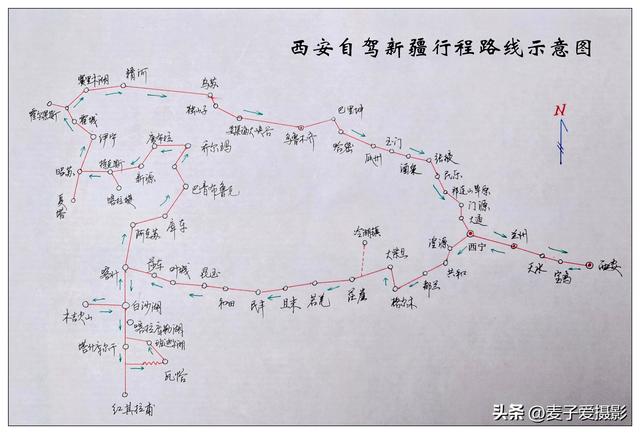 西安自驾新疆行程路线示意图
N
赛里木湖
精河
乌苏
独山子
巴里坤
霍尔果斯
霍城
安集海大峡谷
乌鲁木齐
伊宁
唐布拉
乔尔玛
哈密
玉门
瓜州
酒泉
张掖
昭苏
特克斯
新源
民乐
祁连山草原
夏塔
喀拉峻
巴音布鲁克
门源
大通
阿克苏
库车
冷湖镇
大柴旦
湟源
西宁
兰州
喀什
莎车
叶城
昆玉
和田
民丰
且末
若羌
茫崖
格尔木
都兰
共和
天水
宝鸡
西安
木吉火山
白沙湖
喀拉库勒湖
塔什库尔干
班迪尔湖
瓦恰
红其拉甫
头条 @麦子爱摄影